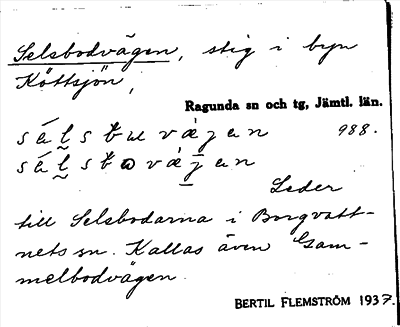 Selsbodvägen, stig i byn
Köttsjön,
Ragunda sn och tg, Jämtl. län.
988.
Leder
till Selsbodarna i Borgvatt-
nets sn. Kallas även Gam-
melbodvägen.
BERTIL FLEMSTRÖM 1937.